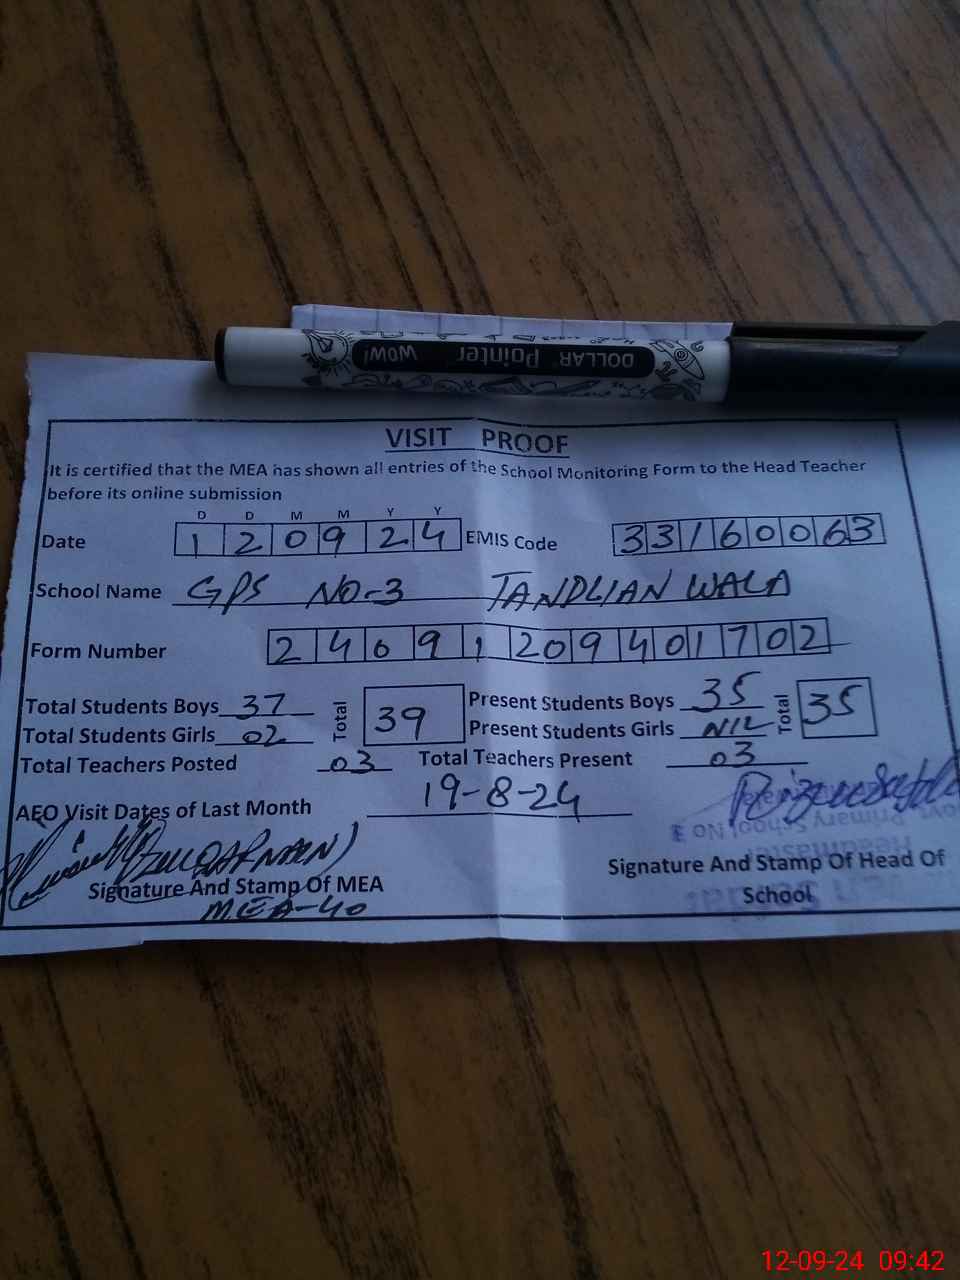 DOLLAR Pointer WOW!
VISIT PROOF
It is certified that the MEA has shown all entries of the School Monitoring Form to the Head Teacher
before its online submission
D D M M Y Y
Date 120924 EMIS Code 33160063
School Name GPS NO-3 TANDLIAN WALA
Form Number 2469120940 1702
Total Students Boys 37 Total 39 Present Students Boys 35 Total 35
Total Students Girls 02 Present Students Girls NIL
Total Teachers Posted 03 Total Teachers Present 03
AEO Visit Dates of Last Month 19-8-24
Primary School NO 3
Signature And Stamp Of MEA
Signature And Stamp Of Head Of
School
MEA-40
12-09-24 09:42